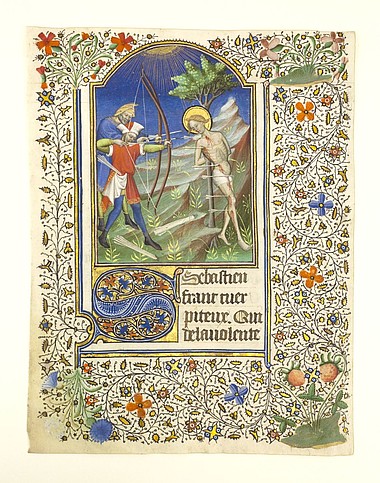 Sebastien
franc cuer
piteux. Qui
de la uiolente